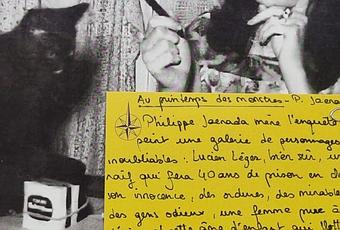 Au printemps des monstres - P. Jaena
Philippe Jaenada mène l'enquête
peint une galerie de personnages
inoubliables : Lucien Léger, bien sûr, u
naïf qui fera 40 ans de prison en c
son innocence, des ordures, des minables
des gens odieux, une femme pure à
cette âme d'enfant qui flott